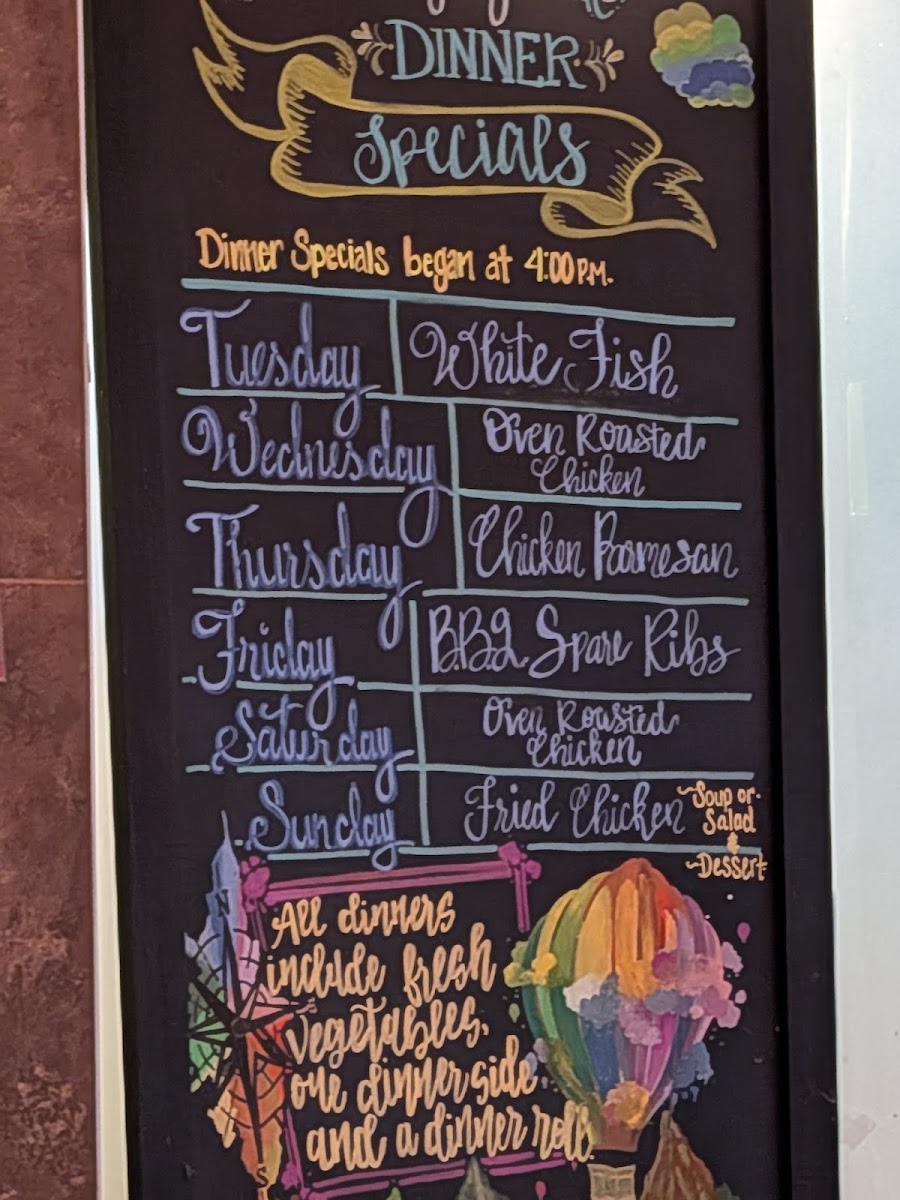 DINNER
Specials
Dinner Specials began at 4:00 P.M.
Tuesday White Fish
Wednesday Oven Roasted
Chicken
Thursday Chicken Parmesan
Friday B.B.Q. Spare Ribs
Saturday Oven Roasted
Chicken
Sunday Fried Chicken ~Soup or
Salad
&
~Dessert
All dinners
include fresh
vegetables,
one dinner side
and a dinner roll.
N
S